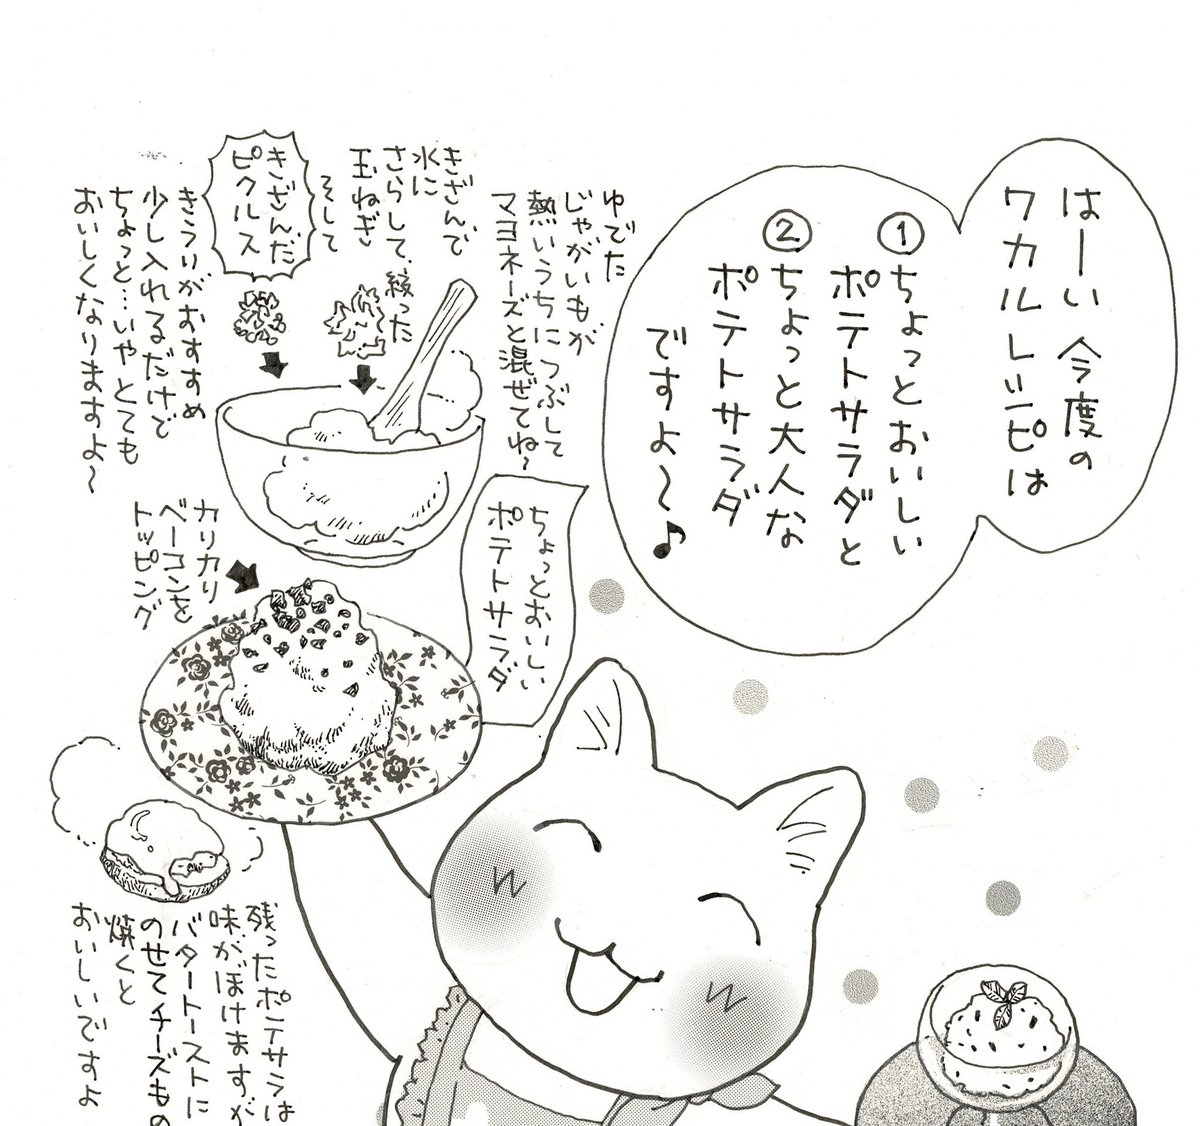 はーい 今度の
ワカルレシピは
①ちょっとおいしい
ポテトサラダと
②ちょっと大人な
ポテトサラダ
ですよ〜♪
ゆでた
じゃがいもが
熱いうちにつぶして
マヨネーズと混ぜてね〜
きざんで
水に
さらして、絞った
玉ねぎ
そして
きざんだ
ピクルス
きうりがおすすめ
少し入れるだけで
ちょっと…いやとても
おいしくなりますよ〜
ちょっとおいしい
ポテトサラダ
カリカリ
ベーコンを
トッピング
残ったポテサラは
味がぼけますが
バタートーストに
のせてチーズもの
焼くと
おいしいですよ